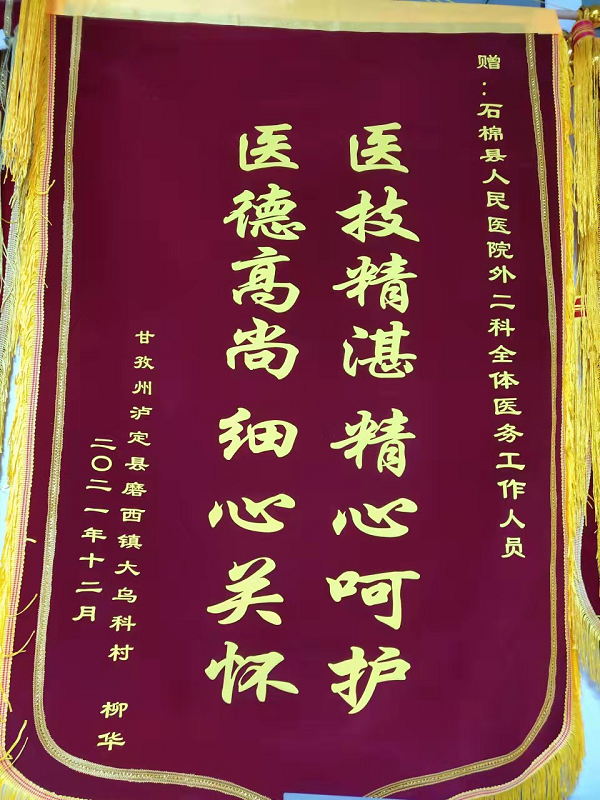 赠：石棉县人民医院外二科全体医务工作人员
医技精湛 精心呵护
医德高尚 细心关怀
甘孜州泸定县磨西镇大乌科村 柳华
二〇二一年十二月